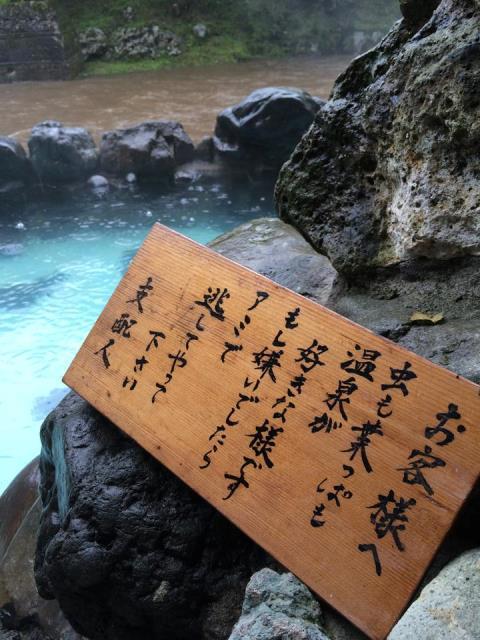 お客様へ
虫も葉っぱも
温泉が
好きな様です
もし嫌いでしたら
アミで
逃してやって
下さい
支配人